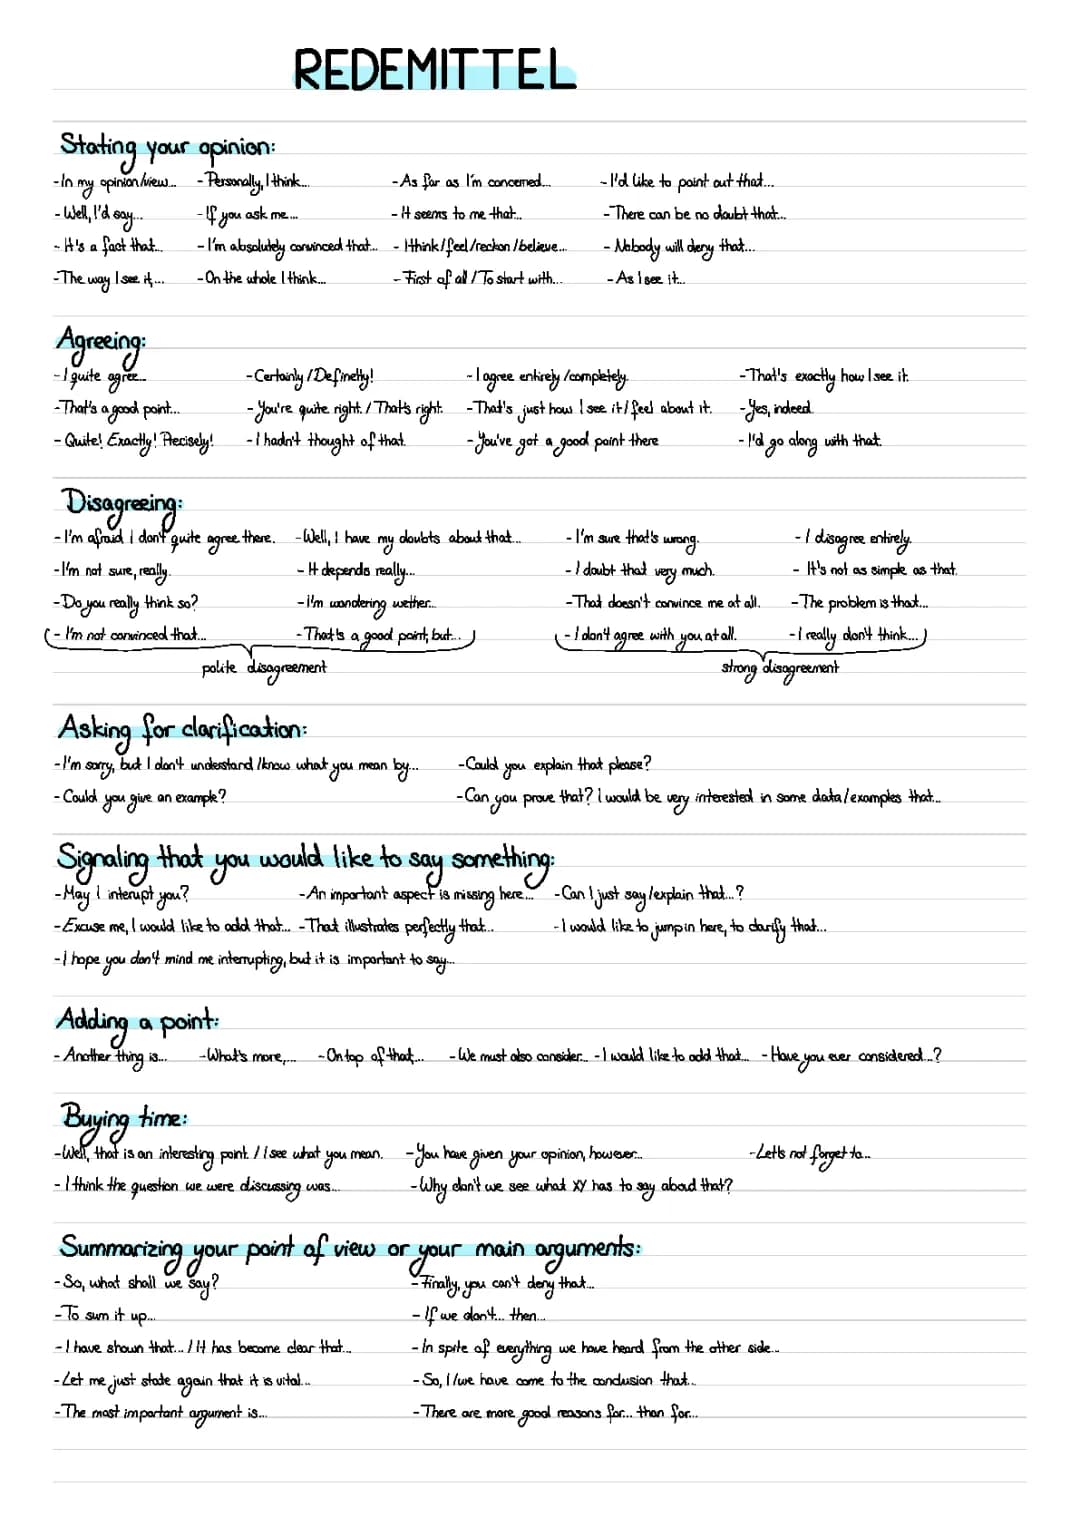 REDEMITTEL
Stating your opinion:
-In my opinion/view... -Personally, I think... -As far as I'm concerned... -I'd like to point out that...
-Well, I'd say... -If you ask me... -It seems to me that... -There can be no doubt that...
-It's a fact that... -I'm absolutely convinced that... -I think/feel/reckon/believe... -Nobody will deny that...
-The way I see it,... -On the whole I think... -First of all / To start with... -As I see it...
Agreeing:
-I quite agree... -Certainly/Definetly! -I agree entirely/completely. -That's exactly how I see it.
-That's a good point... -You're quite right. / That's right. -That's just how I see it/feel about it. -Yes, indeed.
-Quite! Exactly! Precisely! -I hadn't thought of that. -You've got a good point there -I'd go along with that.
Disagreeing:
-I'm afraid I don't quite agree there. -Well, I have my doubts about that... -I'm sure that's wrong. -I disagree entirely.
-I'm not sure, really. -It depends really... -I doubt that very much. -It's not as simple as that.
-Do you really think so? -I'm wondering wether... -That doesn't convince me at all. -The problem is that...
(-I'm not convinced that... -That's a good point, but...) (-I don't agree with you at all. -I really don't think...)
polite disagreement strong disagreement
Asking for clarification:
-I'm sorry, but I don't understand/know what you mean by... -Could you explain that please?
-Could you give an example? -Can you prove that? I would be very interested in some data/examples that...
Signaling that you would like to say something:
-May I interupt you? -An important aspect is missing here... -Can I just say/explain that...?
-Excuse me, I would like to add that... -That illustrates perfectly that... -I would like to jump in here, to clarify that...
-I hope you don't mind me interrupting, but it is important to say...
Adding a point:
-Another thing is... -What's more,... -On top of that,... -We must also consider... -I would like to add that... -Have you ever considered...?
Buying time:
-Well, that is an interesting point. / I see what you mean. -You have given your opinion, however... -Let's not forget to...
-I think the question we were discussing was... -Why don't we see what XY has to say about that?
Summarizing your point of view or your main arguments:
-So, what shall we say? -Finally, you can't deny that...
-To sum it up... -If we don't... then...
-I have shown that... / It has become clear that... -In spite of everything we have heard from the other side...
-Let me just state again that it is vital... -So, I/we have come to the conclusion that...
-The most important argument is... -There are more good reasons for... than for...